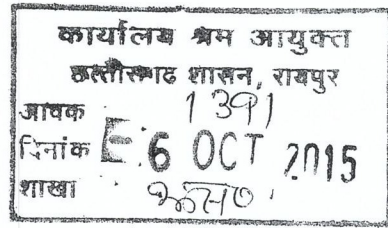 कार्यालय श्रम आयुक्त
छत्तीसगढ शासन, रायपुर
आवक 1391
दिनांक E 6 OCT 2015
शाखा